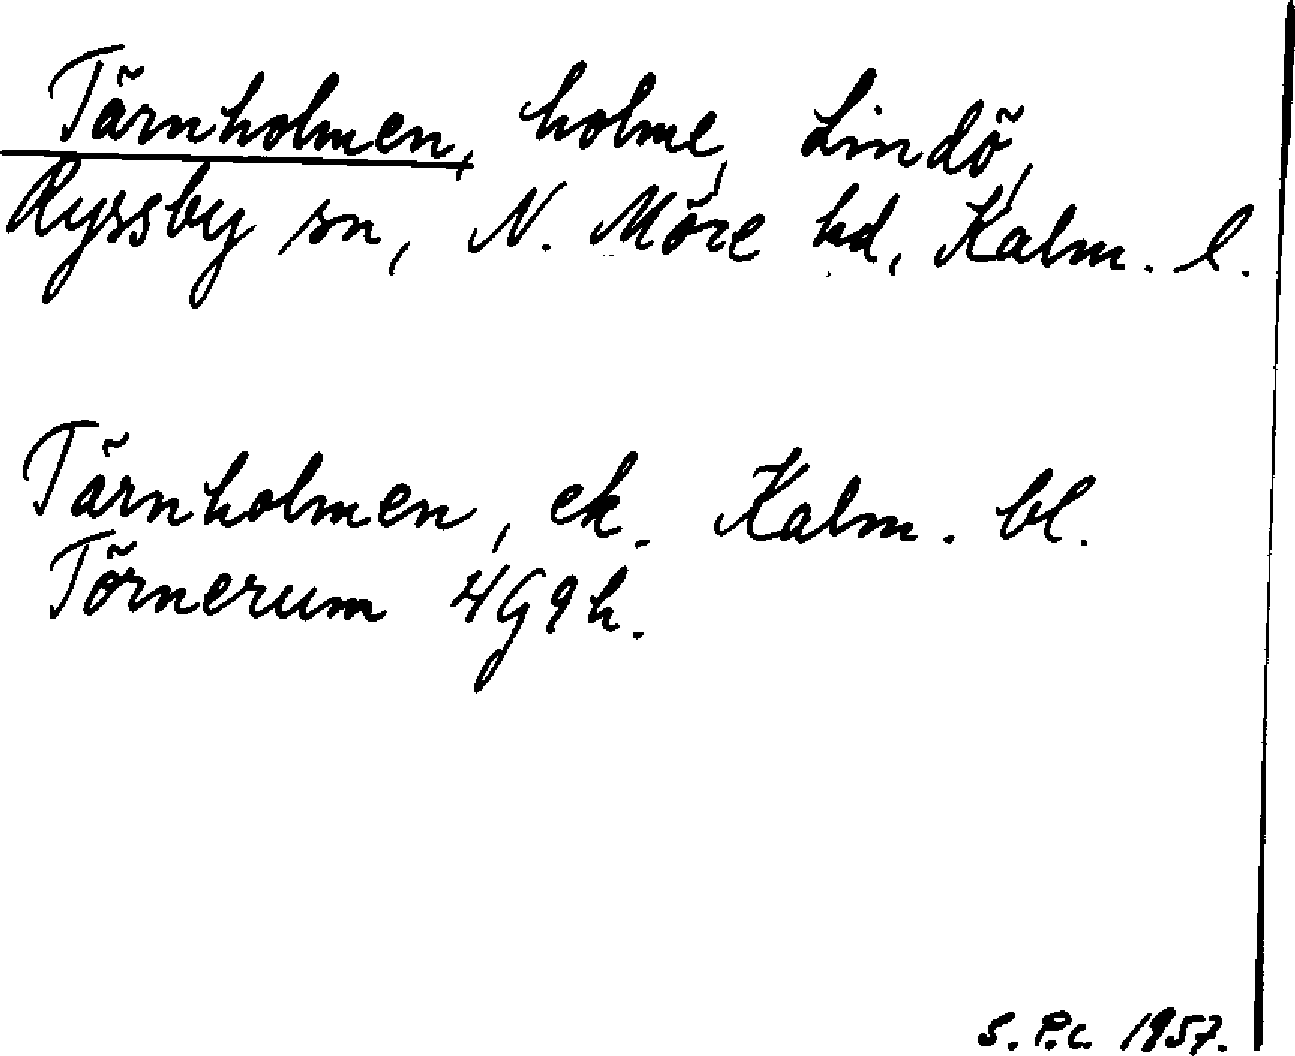 Tärnholmen, holme, Lindö,
Ryssby sn, N. Möre hd, Kalm. l.
Tärnholmen, ek. Kalm. bl.
Törnerum 4G9h.
S.P.C. 1957.